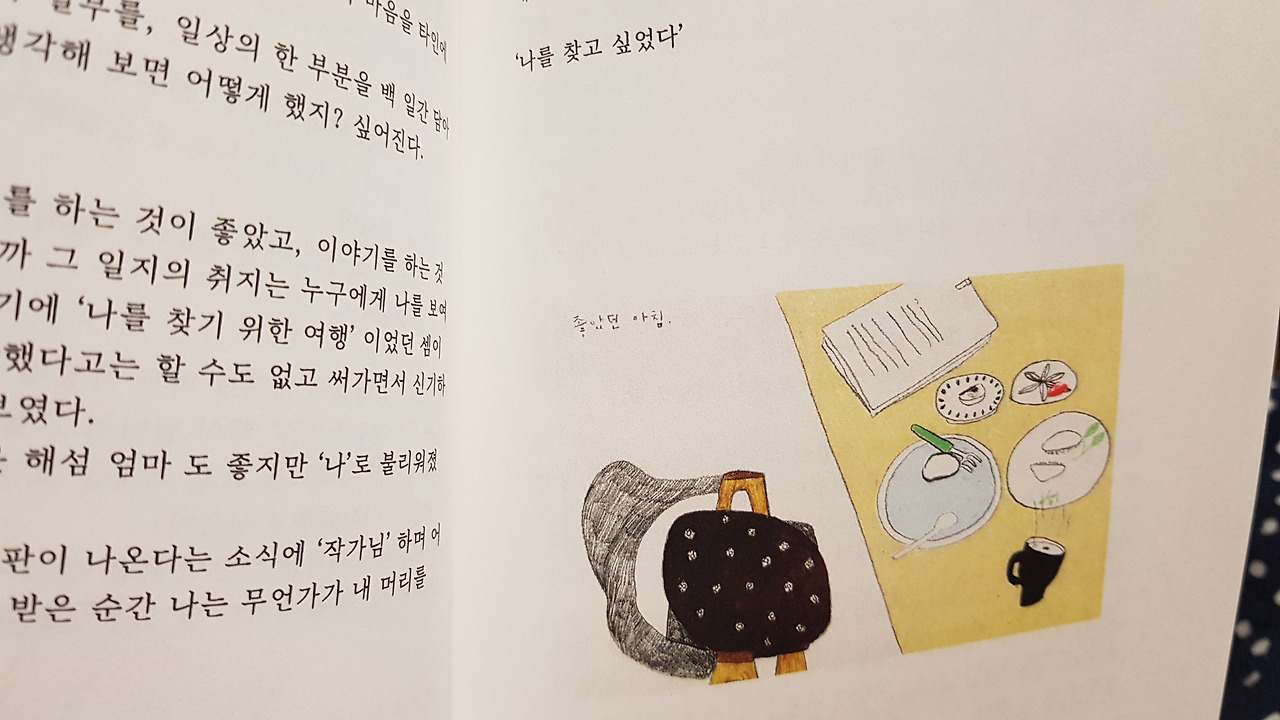 마음을 타인에
일부를, 일상의 한 부분을 백 일간 담아
생각해 보면 어떻게 했지? 싶어진다.
를 하는 것이 좋았고, 이야기를 하는 것
까 그 일지의 취지는 누구에게 나를 보여
기에 ‘나를 찾기 위한 여행’ 이었던 셈이
했다고는 할 수도 없고 써가면서 신기하
보였다.
해섬 엄마 도 좋지만 ‘나’로 불리워졌
판이 나온다는 소식에 ‘작가님’ 하며 어
받은 순간 나는 무언가가 내 머리를
‘나를 찾고 싶었다’
좋았던 아침.